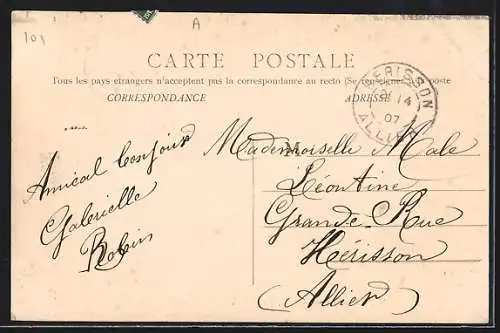 101
A
CARTE POSTALE
Tous les pays etrangers n'acceptent pas la correspondance au recto (Se renseigner poste
CORRESPONDANCE
ADRESSE
HERISSON
14
07
ALLIER
Amical bonjour
Gabrielle
Robin
Mademoiselle Male
Léontine
Grande Rue
Hérisson
(Allier)